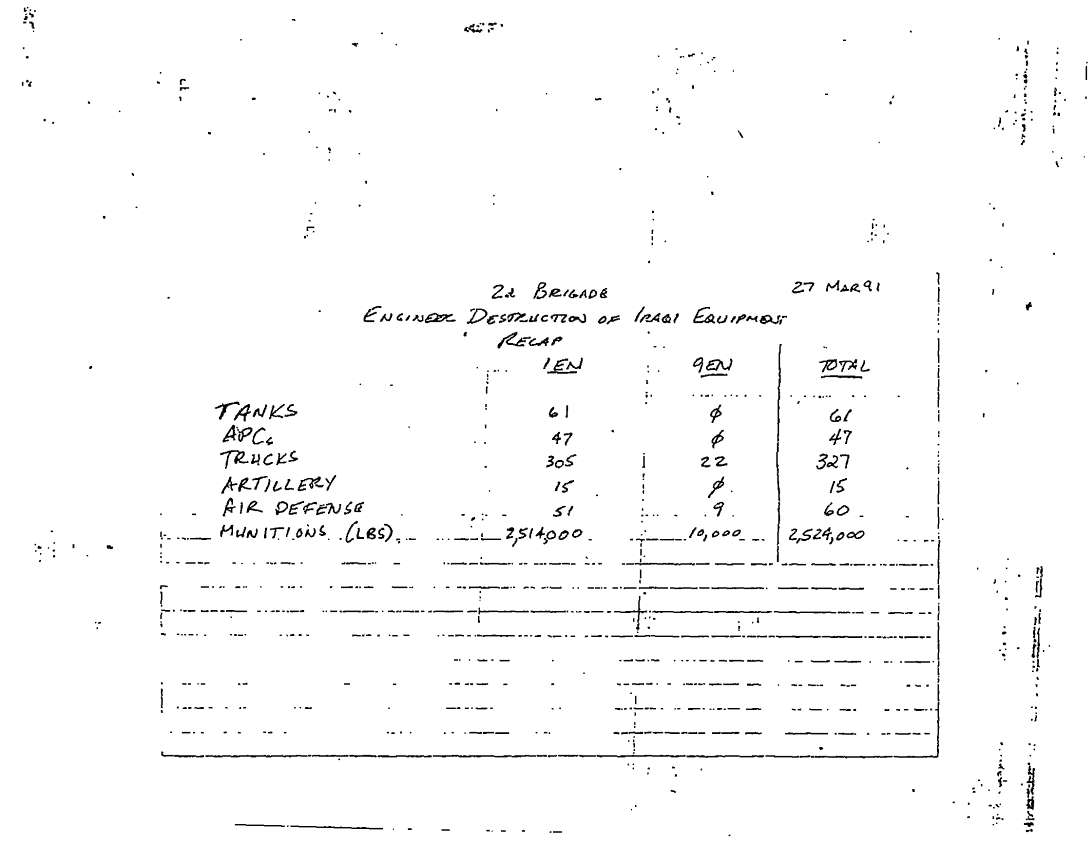 2d BRIGADE 27 MAR 91
ENGINEER DESTRUCTION OF IRAQI EQUIPMENT
RECAP
1EN 9EN TOTAL
TANKS 61 ∅ 61
APCs 47 ∅ 47
TRUCKS 305 22 327
ARTILLERY 15 ∅ 15
AIR DEFENSE 51 9 60
MUNITIONS (LBS) 2,514,000 10,000 2,524,000